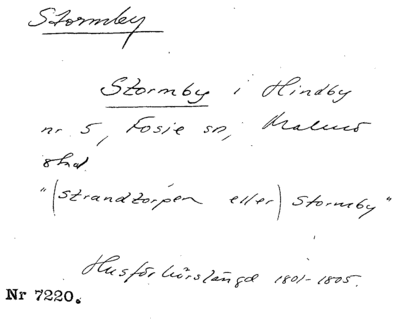 Stormby
Stormby i Hindby
nr 5, Fosie sn, Malmö
stad.
"(strandtorpen eller) Stormby"
Husförhörslängd 1801-1805.
Nr 7220.